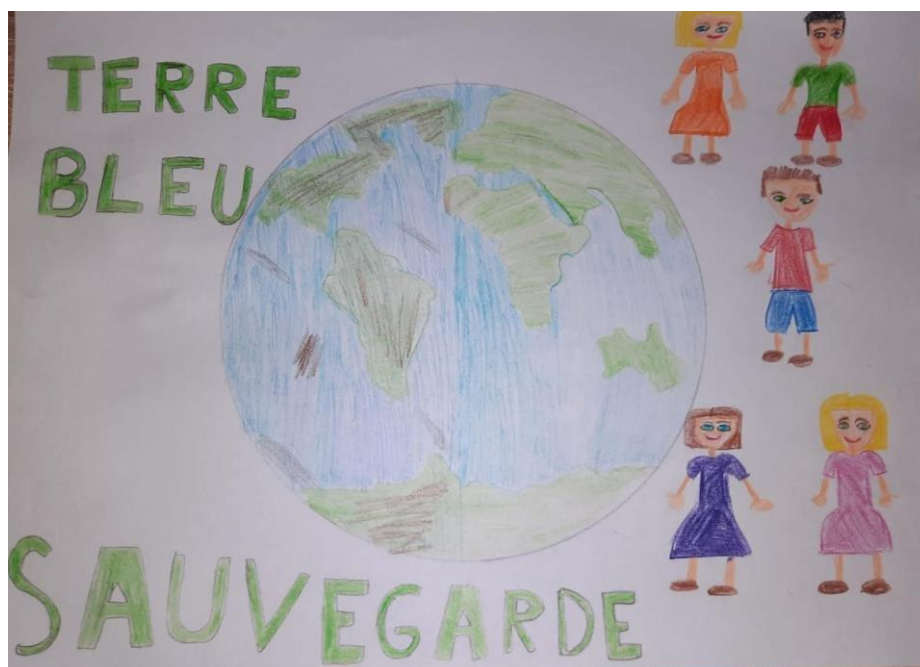 TERRE
BLEU
SAUVEGARDE